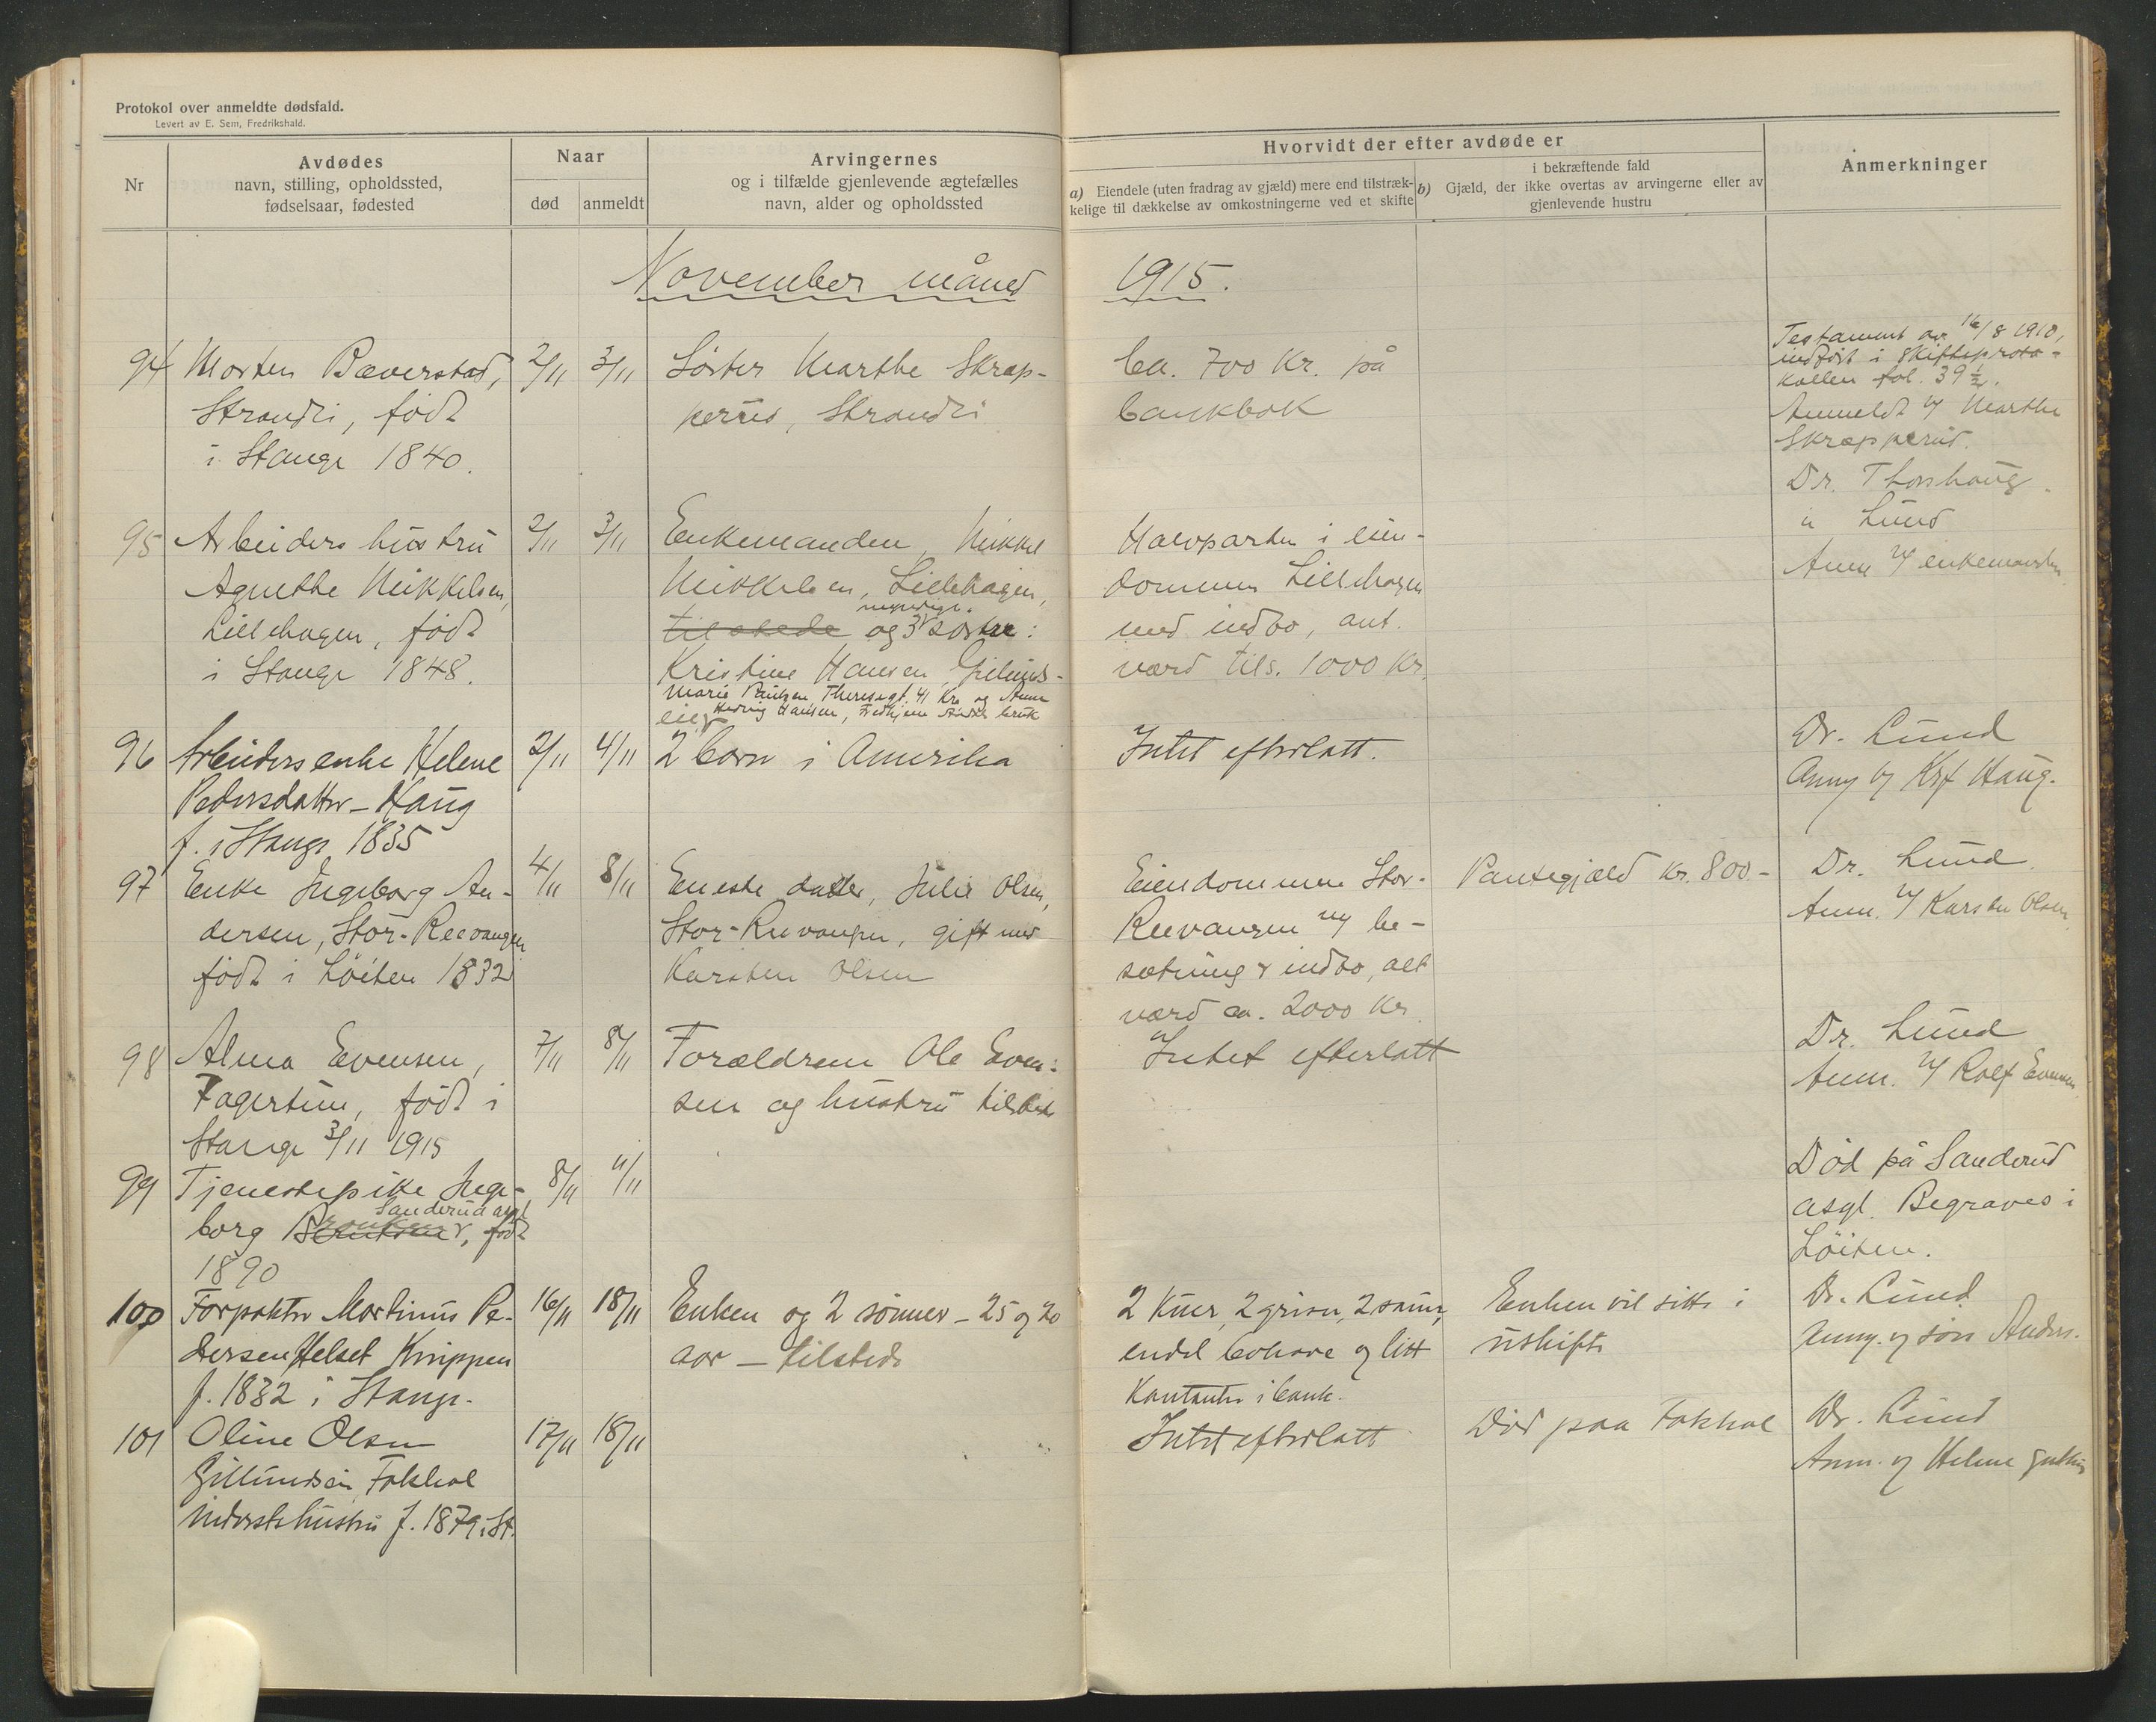 Protokol over anmeldte dødsfald.
Levert av E. Sem, Fredrikshald.
Nr
Avdødes
navn, stilling, opholdssted,
fødselsaar, fødested
Naar
død
anmeldt
Arvingernes
og i tilfælde gjenlevende ægtefælles
navn, alder og opholdssted
Hvorvidt der efter avdøde er
a) Eiendele (uten fradrag av gjæld) mere end tilstræk-
kelige til dækkelse av omkostningerne ved et skifte
i bekræftende fald
b) Gjæld, der ikke overtas av arvingerne eller av
gjenlevende hustru
Anmerkninger
November måned 1915.
94
Morten Bæverstad,
Strandli, født
i Stange 1840.
2/11
3/11
Søster Marthe Skrap-
perud, Strandli
Ca. 700 Kr. på
bankbok
Testament av 16/8 1910,
indført i Skifteproto-
kollen fol. 39 1/2.
Anmeldt v/ Marthe
Skrapperud.
Dr. Thorshaug.
95
Arbeiders hustru
Agnethe Mikkelsen,
Lillehagen, født
i Stange 1848.
2/11
3/11
Enkemanden, Mikkel
Mikkelsen, Lillehagen,
tilstede og 3 myndige søstre:
Kristine Hansen, Gilund-
eier
Marie Paulsen Theresegt. 41 Kra og Anne
Hedvig Hansen,
Halvparten i eien-
dommen Lillehagen
med indbo, ant.
værd tils. 1000 Kr.
" Lund
Anm v/ enkemanden
96
Arbeidersenke Helene
Pedersdatter - Haug
f. i Stange 1835
2/11
4/11
2 barn i Amerika
Intet efterlatt.
Dr. Lund
Anm v/ Haug.
97
Enke Ingeborg An-
dersen, Stor-Reevangen
født i Løiten 1832
4/11
8/11
Eneste datter, Julie Olsen,
Stor-Reevangen, gift med
Karsten Olsen
Eiendommen Stor-
Reevangen m/ be-
sætning & indbo, alt
værd ca. 2000 Kr.
Pantegjæld Kr. 800.-
Dr. Lund.
Anm. v/ Karsten Olsen
98
Alma Evensen,
Fagertun, født i
Stange 3/11 1915
7/11
8/11
Forældrene Ole Even-
sen og hustru tilstede
Intet efterlatt
Dr. Lund
Anm. v/ Rolf Evensen
99
Tjenestepike Inge-
borg Sanderud asyl, født
1890
8/11
11/11
Død på Sanderud
asyl. Begraves i
Løiten.
100
Forpakter Martinus Pe-
dersen Helset Knippen
f. 1832 i Stange.
16/11
18/11
Enken og 2 sønner - 25 og 20
aar - tilstede
2 kuer, 2 griser, 2 sauer,
endel bohave og litt
kontanter i bank.
Enken vil sitte i
uskifte
Dr. Lund
Anm. v/ søn Anders.
101
Oline Olsen
Gillundseie, Fokhol
Inderstshustru f. 1879 i St.
17/11
18/11
Intet efterlatt
Død paa Fokhol
Dr. Lund
Anm. v/ Helene